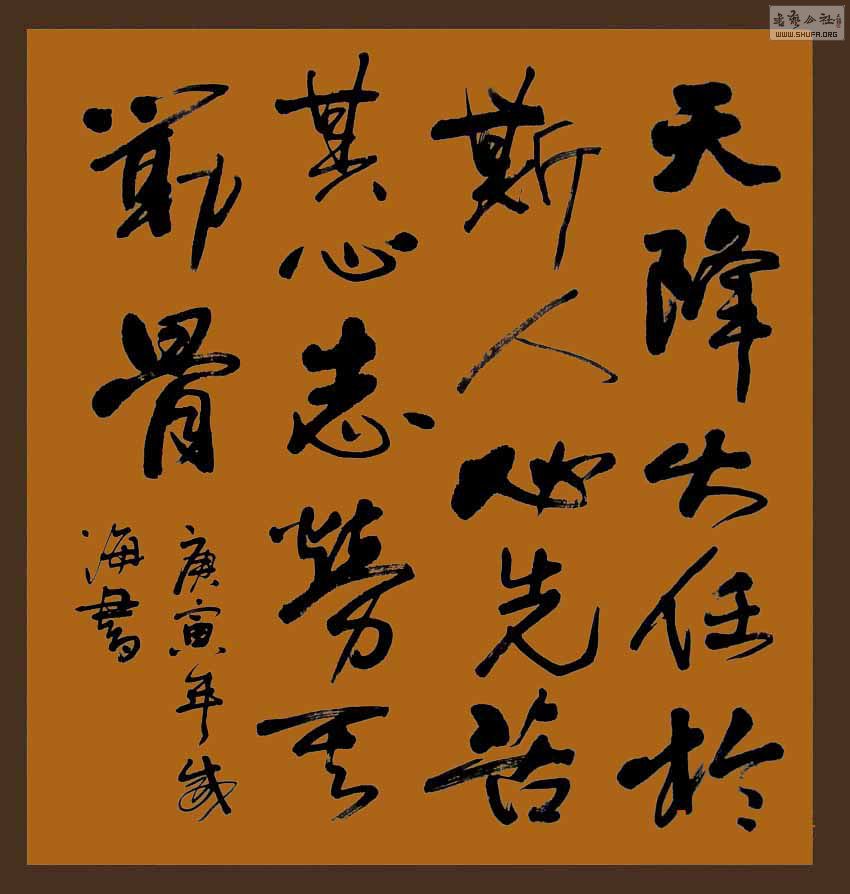 天降大任於
斯人必先苦
其心志勞其
筋骨
庚寅年
海書
書藝公社
WWW.SHUFA.ORG